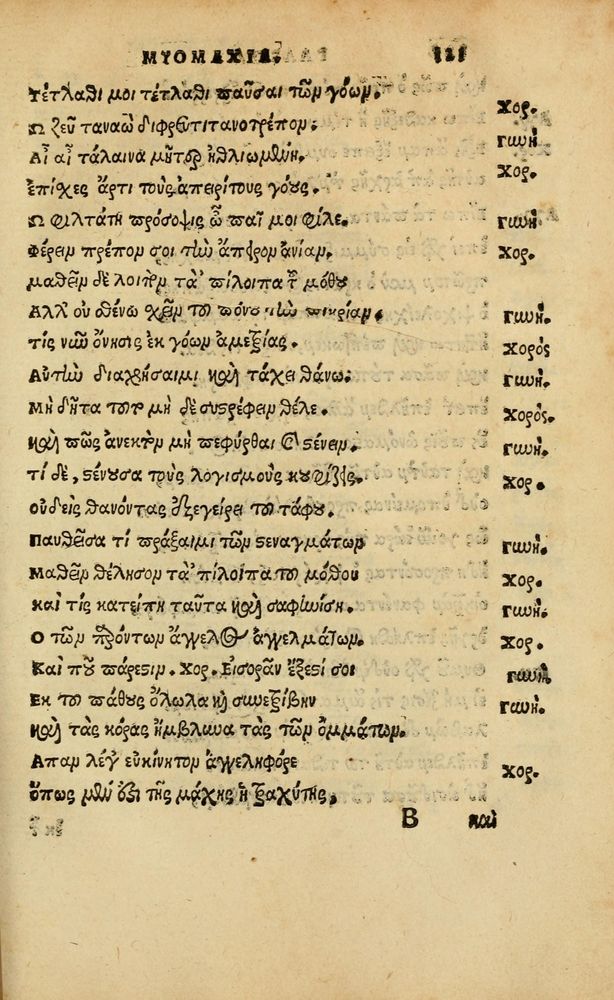 ΜΥΟΜΑΧΙΑ. 121
Τέτλαθι μοι τέτλαθι παῦσαι τῶν γόων. Χορ.
Ω ζεῦ ταναῶ διφρε τιτανοτρέπον. Γωή.
Αἲ αἲ τάλαινα μῆτερ ἠθλιωμένη. Χορ.
Επίχες ἄρτι τοὺς ἀπειρίτους γόους.
Ω φιλτάτη πρόσοψις ὦ παῖ μοι φίλε. Γωή
Φέρειν πρέπον σοι τὴν ἄπορον ἀνίαν. Χορ.
μαθεῖν δὲ λοιπὸν τἀ πίλοιπα τοῦ μόθου
Αλλ' οὐ θένω χεῖν τοῦ πόνου τὴν πικρίαν. Γωή.
τίς νῶν ὄνησις ἐκ γόων ἀμετρίας. Χορὸς
Αὐτὴν διαχρήσαιμι καὶ τάχει θάνω. Γωή.
Μὴ δῆτα τοῦτον μὴ δὲ συστρέφειν θέλε. Χορός.
καὶ πῶς ἀνεκτὸν μὴ πεφύρθαι καὶ στένειν. Γωή.
τί δὲ, στένουσα τοὺς λογισμοὺς κουφίζῃς. Χορ.
οὐδεὶς θανόντας ἐξεγείρει τοῦ τάφου.
Παυθεῖσα τί πράξαιμι τῶν στεναγμάτων Γωή.
Μαθεῖν θέλησον τἀ πίλοιπα τοῦ μόθου Χορ.
καὶ τίς κατείπῃ ταῦτα καὶ σαφηνίσῃ. Γωή.
Ο τῶν παρόντων ἄγγελος ἀγγελμάτων. Χορ.
Καὶ ποῦ πάρεστιν. Χορ. Εἰσορᾶν ἔξεστί σοι Γωή.
Εκ τοῦ πάθους ὄλωλα καὶ συνεξέβην Γωή.
καὶ τὰς κόρας ἤμβλυνα τὰς τῶν ὀμμάτων.
Απαν λέγε εὐκίνητον ἀγγεληφόρε Χορ.
ὅπως μὲν ἔξει τῆς μάχης ἡ τραχύτης,
Β καὶ